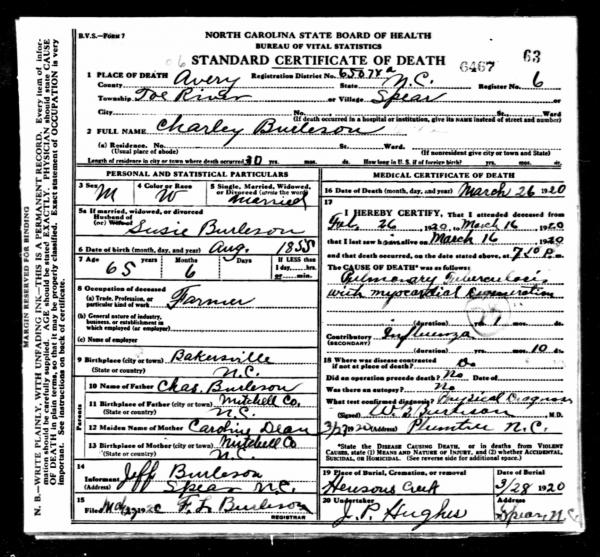 B.V.S.—FORM 7
NORTH CAROLINA STATE BOARD OF HEALTH
BUREAU OF VITAL STATISTICS
STANDARD CERTIFICATE OF DEATH
6467
63
1 PLACE OF DEATH
County Avery Registration District No. State N.C. Register No. 6
Township Toe River or Village Spear
City No. St. Ward
(If death occurred in a hospital or institution, give its NAME instead of street and number)
2 FULL NAME Charley Burleson
(a) Residence. No. St. Ward.
(Usual place of abode) (If nonresident give city or town and State)
Length of residence in city or town where death occurred 30 yrs. mos. ds. How long in U. S. if of foreign birth? yrs. mos. ds.
PERSONAL AND STATISTICAL PARTICULARS
3 Sex M
4 Color or Race W
5 Single, Married, Widowed, or Divorced (write the word) Married
5a If married, widowed or divorced
Husband of
(or) Wife of
Susie Burleson
6 Date of birth (month, day, and year) Aug. 1855
7 Age Years Months Days If LESS than
65 6 1 day, hrs.
or min.
8 Occupation of deceased
(a) Trade, Profession, or
particular kind of work Farmer
(b) General nature of industry,
business, or establishment in
which employed (or employer)
(c) Name of employer
9 Birthplace (city or town) Bakersville
(State or country) N.C.
Parents
10 Name of Father Chas. Burleson
11 Birthplace of Father (city or town) Mitchell Co.
(State or country) N.C.
12 Maiden Name of Mother Caroline Dean
13 Birthplace of Mother (city or town) Mitchell Co
(State or country) N.C.
14
Informant Jeff Burleson
(Address) Spear N.C.
15
Filed Mch 27 1920 F. L. Burleson
REGISTRAR
MEDICAL CERTIFICATE OF DEATH
16 Date of Death (month, day, and year) March 26 1920
17
I HEREBY CERTIFY, That I attended deceased from
Feb. 26, 1920, to Mch 16, 1920
that I last saw h alive on March 16, 1920
and that death occurred, on the date stated above, at 750 P. m.
The CAUSE OF DEATH* was as follows:
Pulmonary Tuberculosis
with myocardial Degeneration
(duration) yrs. mos. ds.
Contributory Influenza
(SECONDARY)
(duration) yrs. mos. 10 ds.
18 Where was disease contracted
if not at place of death?
Did an operation precede death? No Date of
Was there an autopsy? No
What test confirmed diagnosis? Physical Diagnosis
(Signed) W. B. Burleson M.D.
3/27, 1920 Plumtree N.C.
*State the DISEASE CAUSING DEATH, or in deaths from VIOLENT
CAUSES, state (1) MEANS AND NATURE OF INJURY, and (2) whether ACCIDENTAL,
SUICIDAL, OR HOMICIDAL. (See reverse side for additional space).
19 Place of Burial, Cremation, or removal Date of Burial
Hensons Creek 3/28 1920
20 Undertaker Address
J. P. Hughes Spear, N.C.
MARGIN RESERVED FOR BINDING
N. B.—WRITE PLAINLY, WITH UNFADING INK—THIS IS A PERMANENT RECORD. Every item of infor-
mation should be carefully supplied. AGE should be stated EXACTLY. PHYSICIAN should state CAUSE
OF DEATH in plain terms, so that it may be properly classified. Exact statement of OCCUPATION is very
important. See instructions on back of certificate.